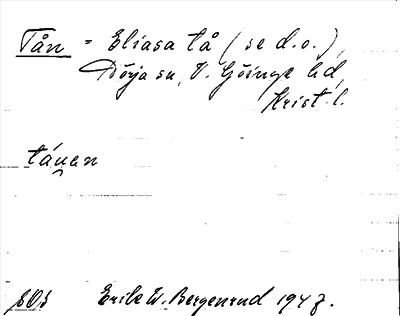 Tån = Eliasa tå (se d.o.),
Dörja sn, V. Göinge hd,
Krist. l.
tán̯an
Erik W. Bergenrud 1947.